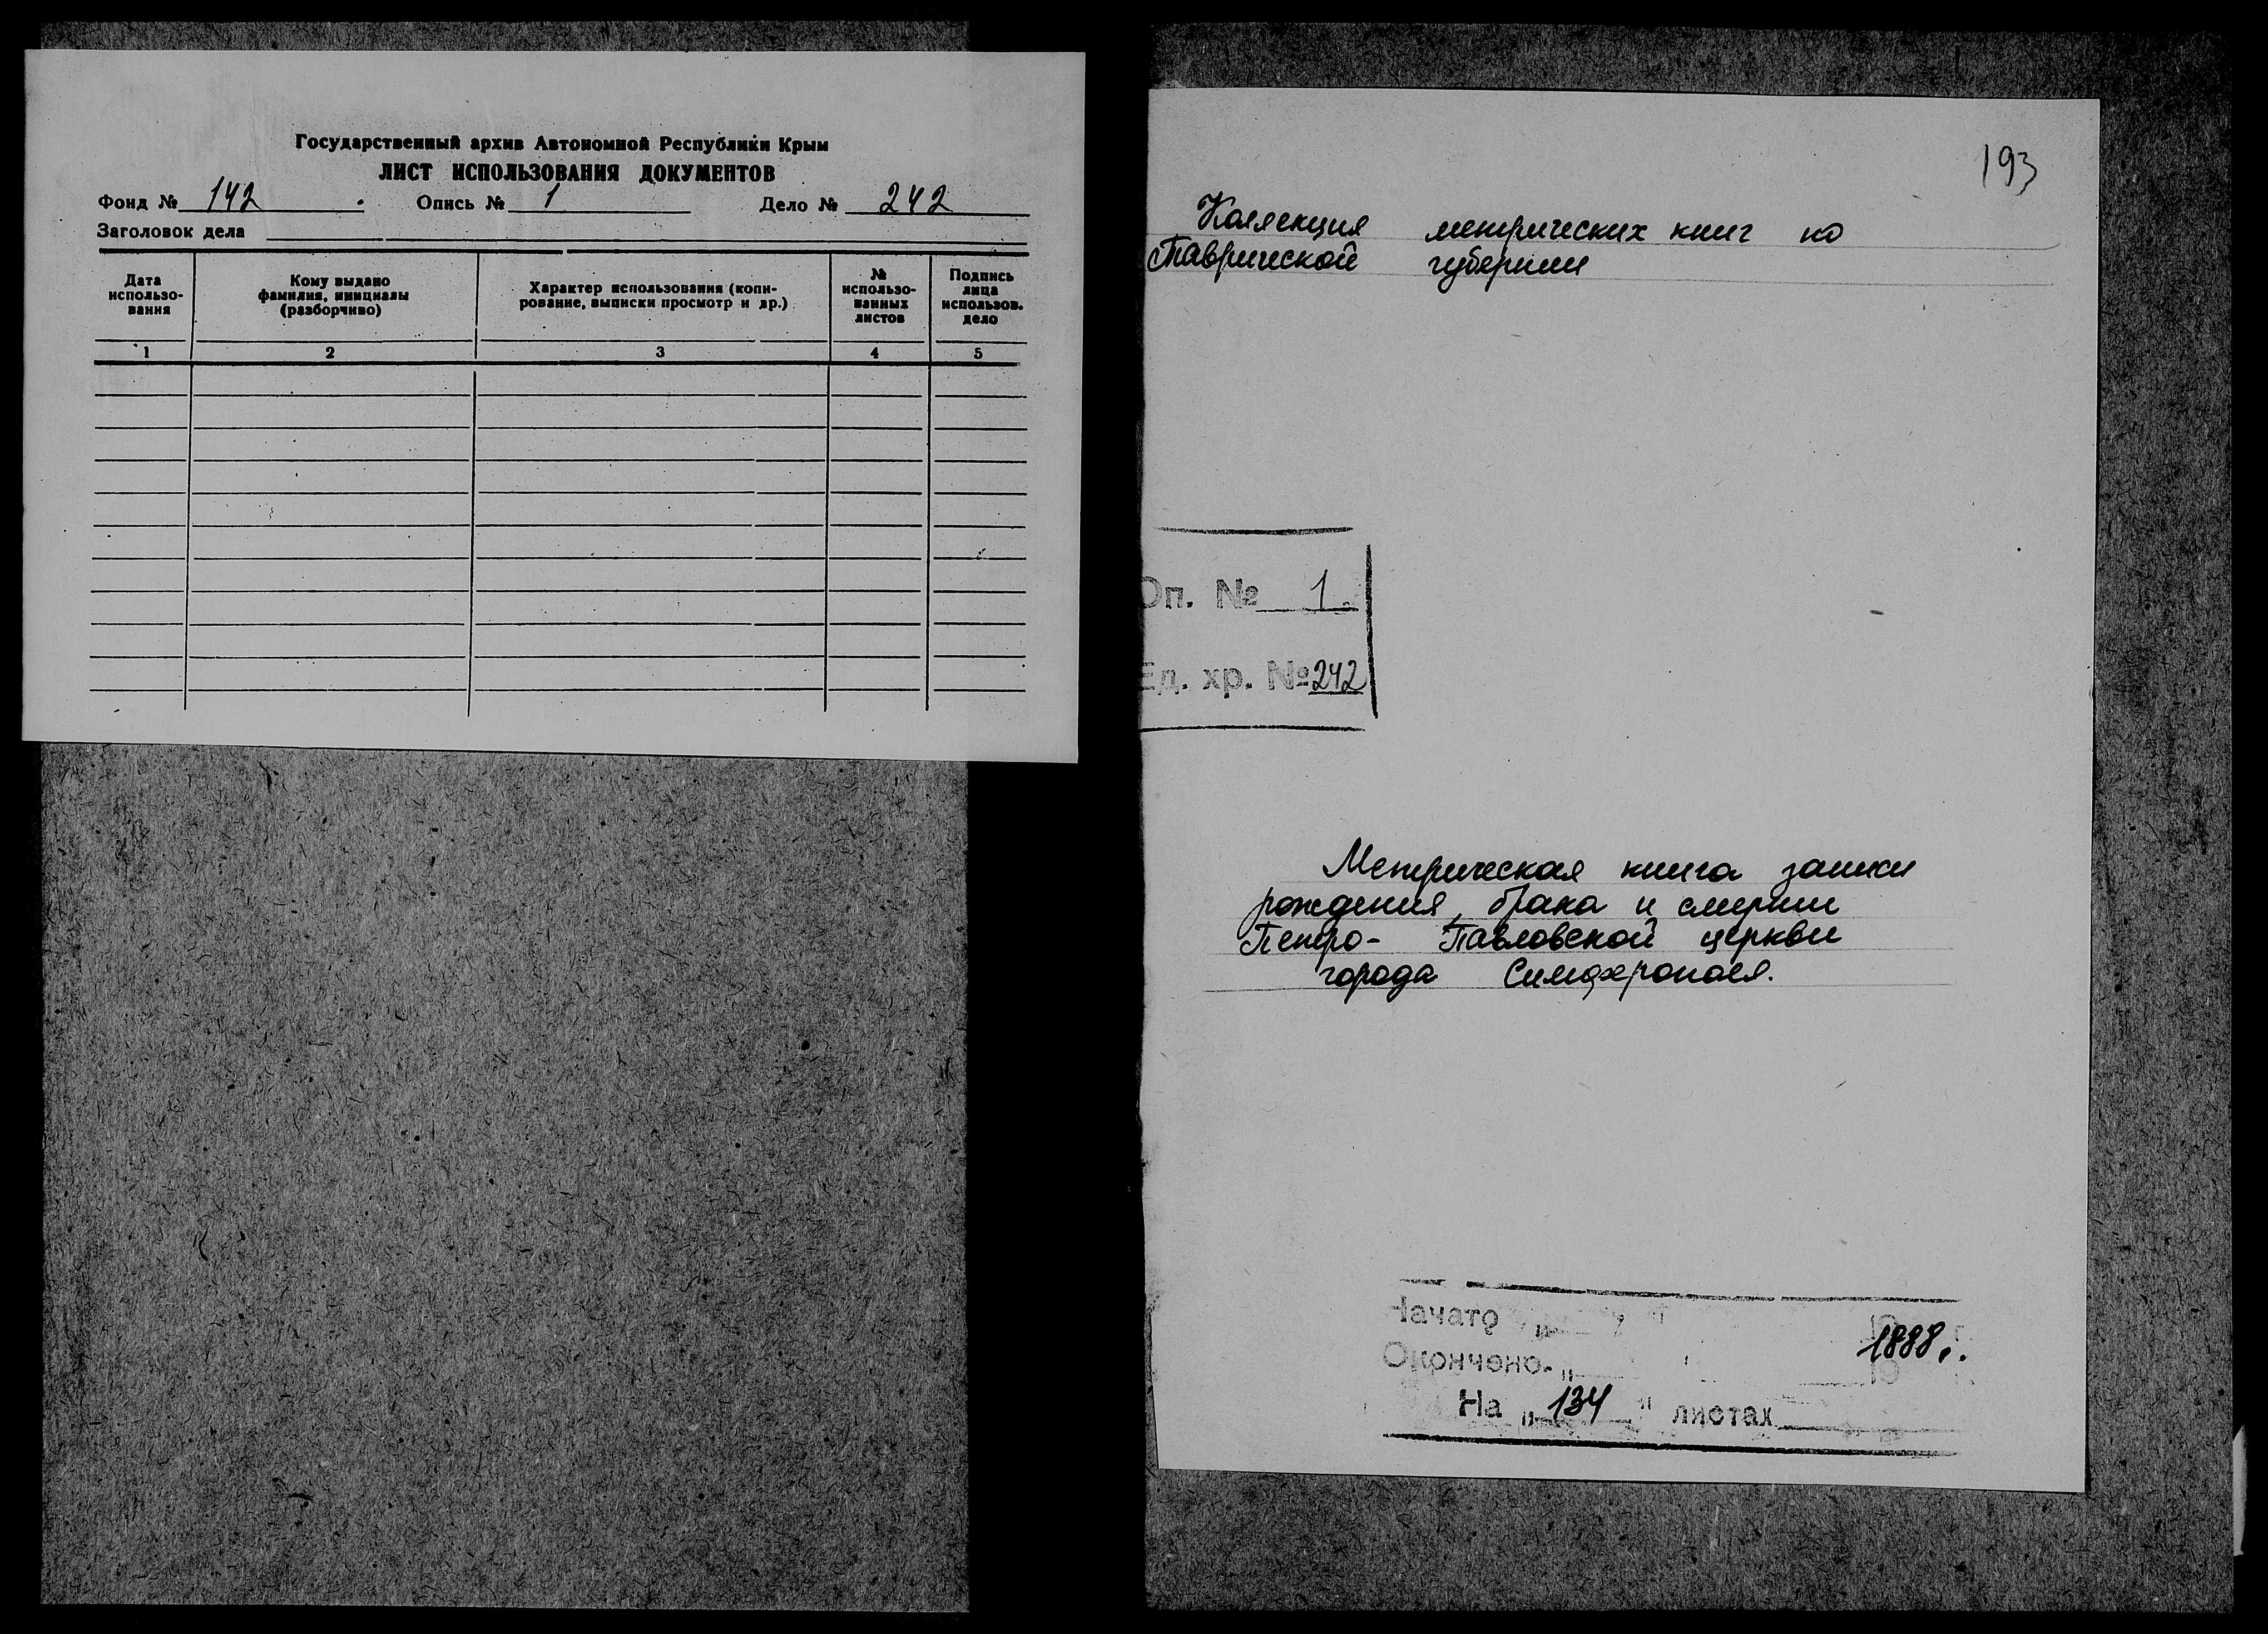 Государственный архив Автономной Республики Крым
ЛИСТ ИСПОЛЬЗОВАНИЯ ДОКУМЕНТОВ
Фонд № 142 Опись № 1 Дело № 242
Заголовок дела
Дата использо-вания
Кому выдано фамилия, инициалы (разборчиво)
Характер использования (копи-рование, выписки просмотр и др.)
№ использо-ванных листов
Подпись лица использов. дело
1 2 3 4 5
193
Коллекция метрических книг по
Таврической губернии
Оп. № 1
Ед. хр. № 242
Метрическая книга записи
рождения, брака и смерти
Петро- Павловской церкви
города Симферополя.
Начато
1888 г.
Окончено
На „134" листах